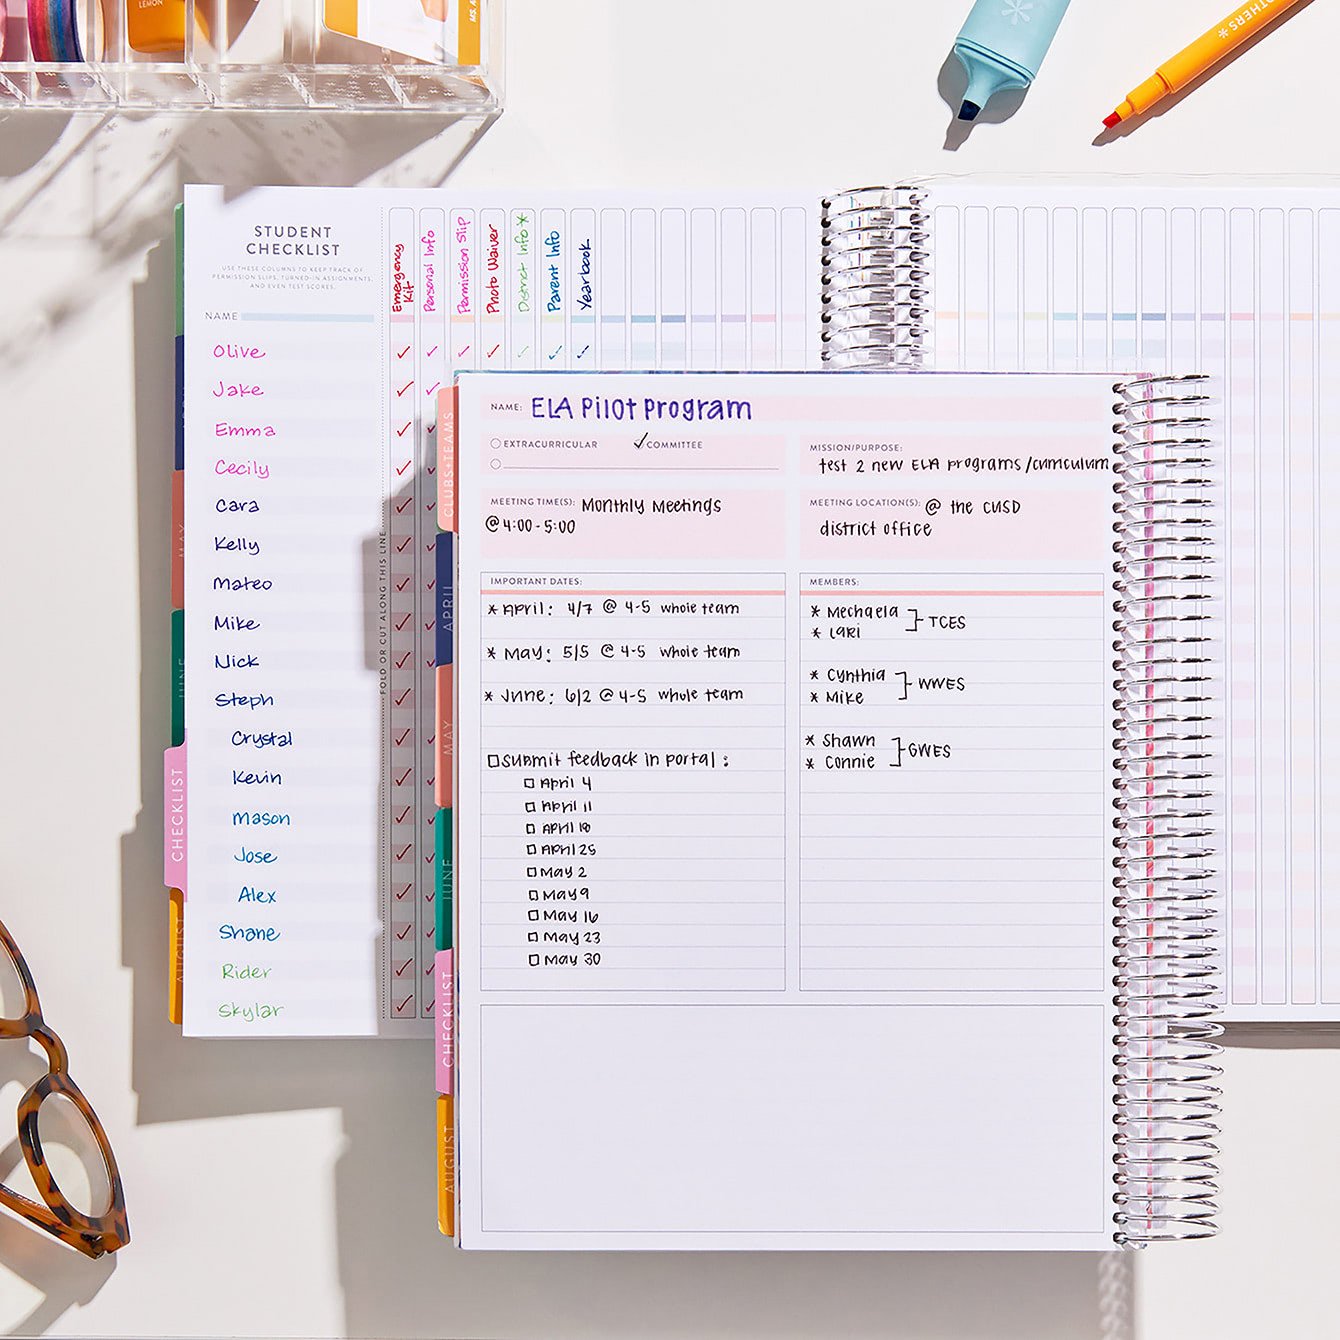 LEMON
MS. A
OTHERS
STUDENT
CHECKLIST
USE THESE COLUMNS TO KEEP TRACK OF
PERMISSION SLIPS, TURNED-IN ASSIGNMENTS,
AND EVEN TEST SCORES.
NAME
Emergency
Kit
Personal Info
Permission Slip
Photo Waiver
District Info *
Parent Info
Yearbook
Olive
Jake
Emma
Cecily
Cara
Kelly
Mateo
Mike
Nick
Steph
Crystal
Kevin
Mason
Jose
Alex
Shane
Rider
Skylar
FOLD OR CUT ALONG THIS LINE
MAY
JUNE
CHECKLIST
AUGUST
CLUBS+TEAMS
APRIL
MAY
JUNE
CHECKLIST
AUGUST
NAME: ELA Pilot Program
EXTRACURRICULAR ✓COMMITTEE
MISSION/PURPOSE:
test 2 new ELA programs/curriculum
MEETING TIME(S): Monthly Meetings
@ 4:00 - 5:00
MEETING LOCATION(S): @ the CUSD
district office
IMPORTANT DATES:
* April: 4/7 @ 4-5 whole team
* May: 5/5 @ 4-5 whole team
* June: 6/2 @ 4-5 whole team
Submit feedback in portal:
April 4
April 11
April 18
April 25
May 2
May 9
May 16
May 23
May 30
MEMBERS:
* Mechaela
* Lari
TCES
* Cynthia
* Mike
WWES
* Shawn
* Connie
GWES